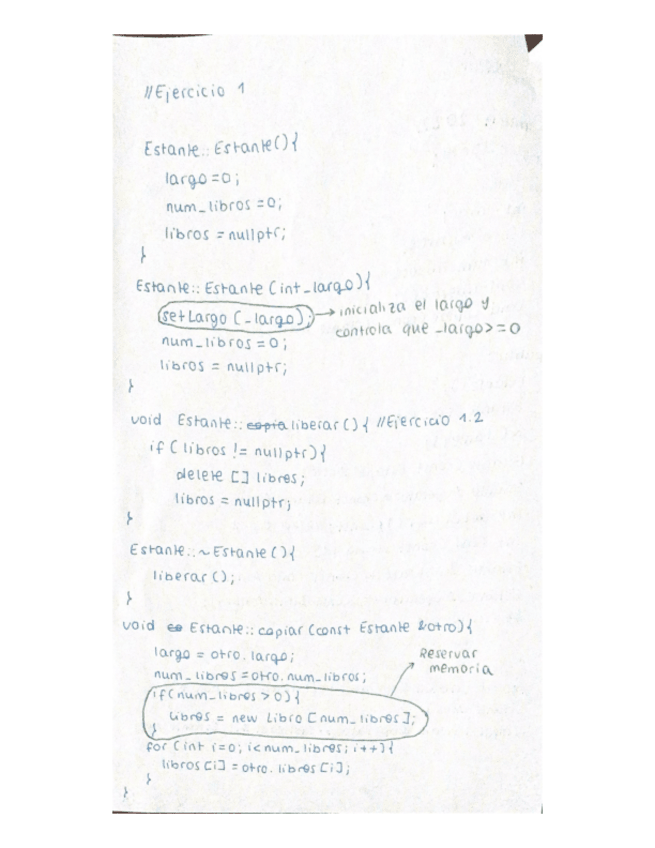 //Ejercicio 1
Estante::Estante(){
largo=0;
num_libros=0;
libros = nullptr;
}
Estante::Estante(int _largo){
setLargo(_largo); → inicializa el largo y
controla que _largo>=0
num_libros=0;
libros = nullptr;
}
void Estante::copia liberar(){ //Ejercicio 1.2
if(libros != nullptr){
delete [] libros;
libros = nullptr;
}
Estante::~Estante(){
liberar();
}
void co Estante::copiar(const Estante &otro){
largo = otro.largo;
Reservar
memoria
num_libros=otro.num_libros;
if(num_libros>0){
libros = new Libro[num_libros];
}
for(int i=0; i<num_libros; i++){
libros[i]=otro.libros[i];
}
}